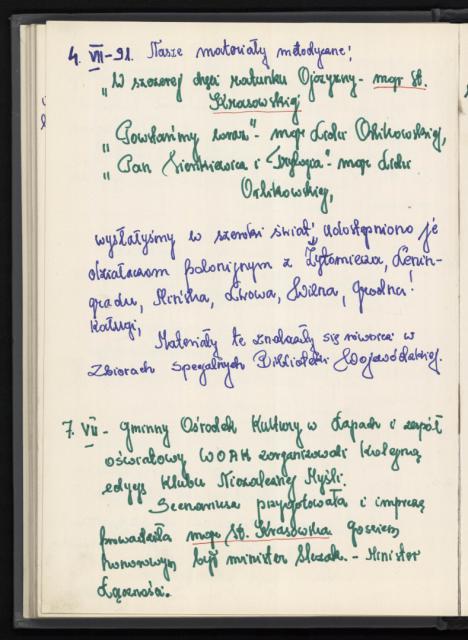 4. VII-91. Nasze materiały metodyczne!
„W szczerej chęci ratunku Ojczyzny" - mgr St.
Krasowskiej
„Powstańmy wraz" - mgr Lidii Orlikowskiej,
„Pan Sienkiewicz i Trylogia" - mgr Lidii
Orlikowskiej,
wysłałyśmy w szeroki świat; udostępniono je
działaczom polonijnym z Żytomierza, Lenin-
gradu, Mińska, Lwowa, Wilna, Grodna!
Kaługi,
Materiały te znalazły się również w
Zbiorach Specjalnych Biblioteki Wojewódzkiej.
7. VII - Gminny Ośrodek Kultury w Łapach i zespół
oświatowy WOAK zorganizowali kolejną
edycję Klubu Niezależnej Myśli.
Scenariusz przygotowała i imprezę
prowadziła mgr St. Krasowska gościem
honorowym był minister Slezak. - Minister
Łączności.